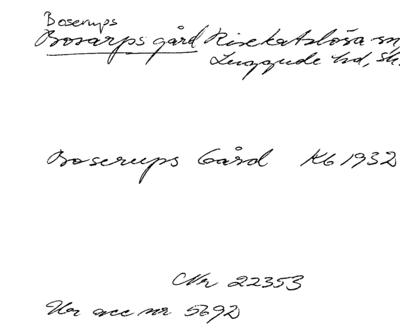 Boserups
Bosarps gård Risekatslösa sn
Luggude hd, Sk.
Boserups Gård Kb 1932
Nr 22353
Ur acc nr 5692